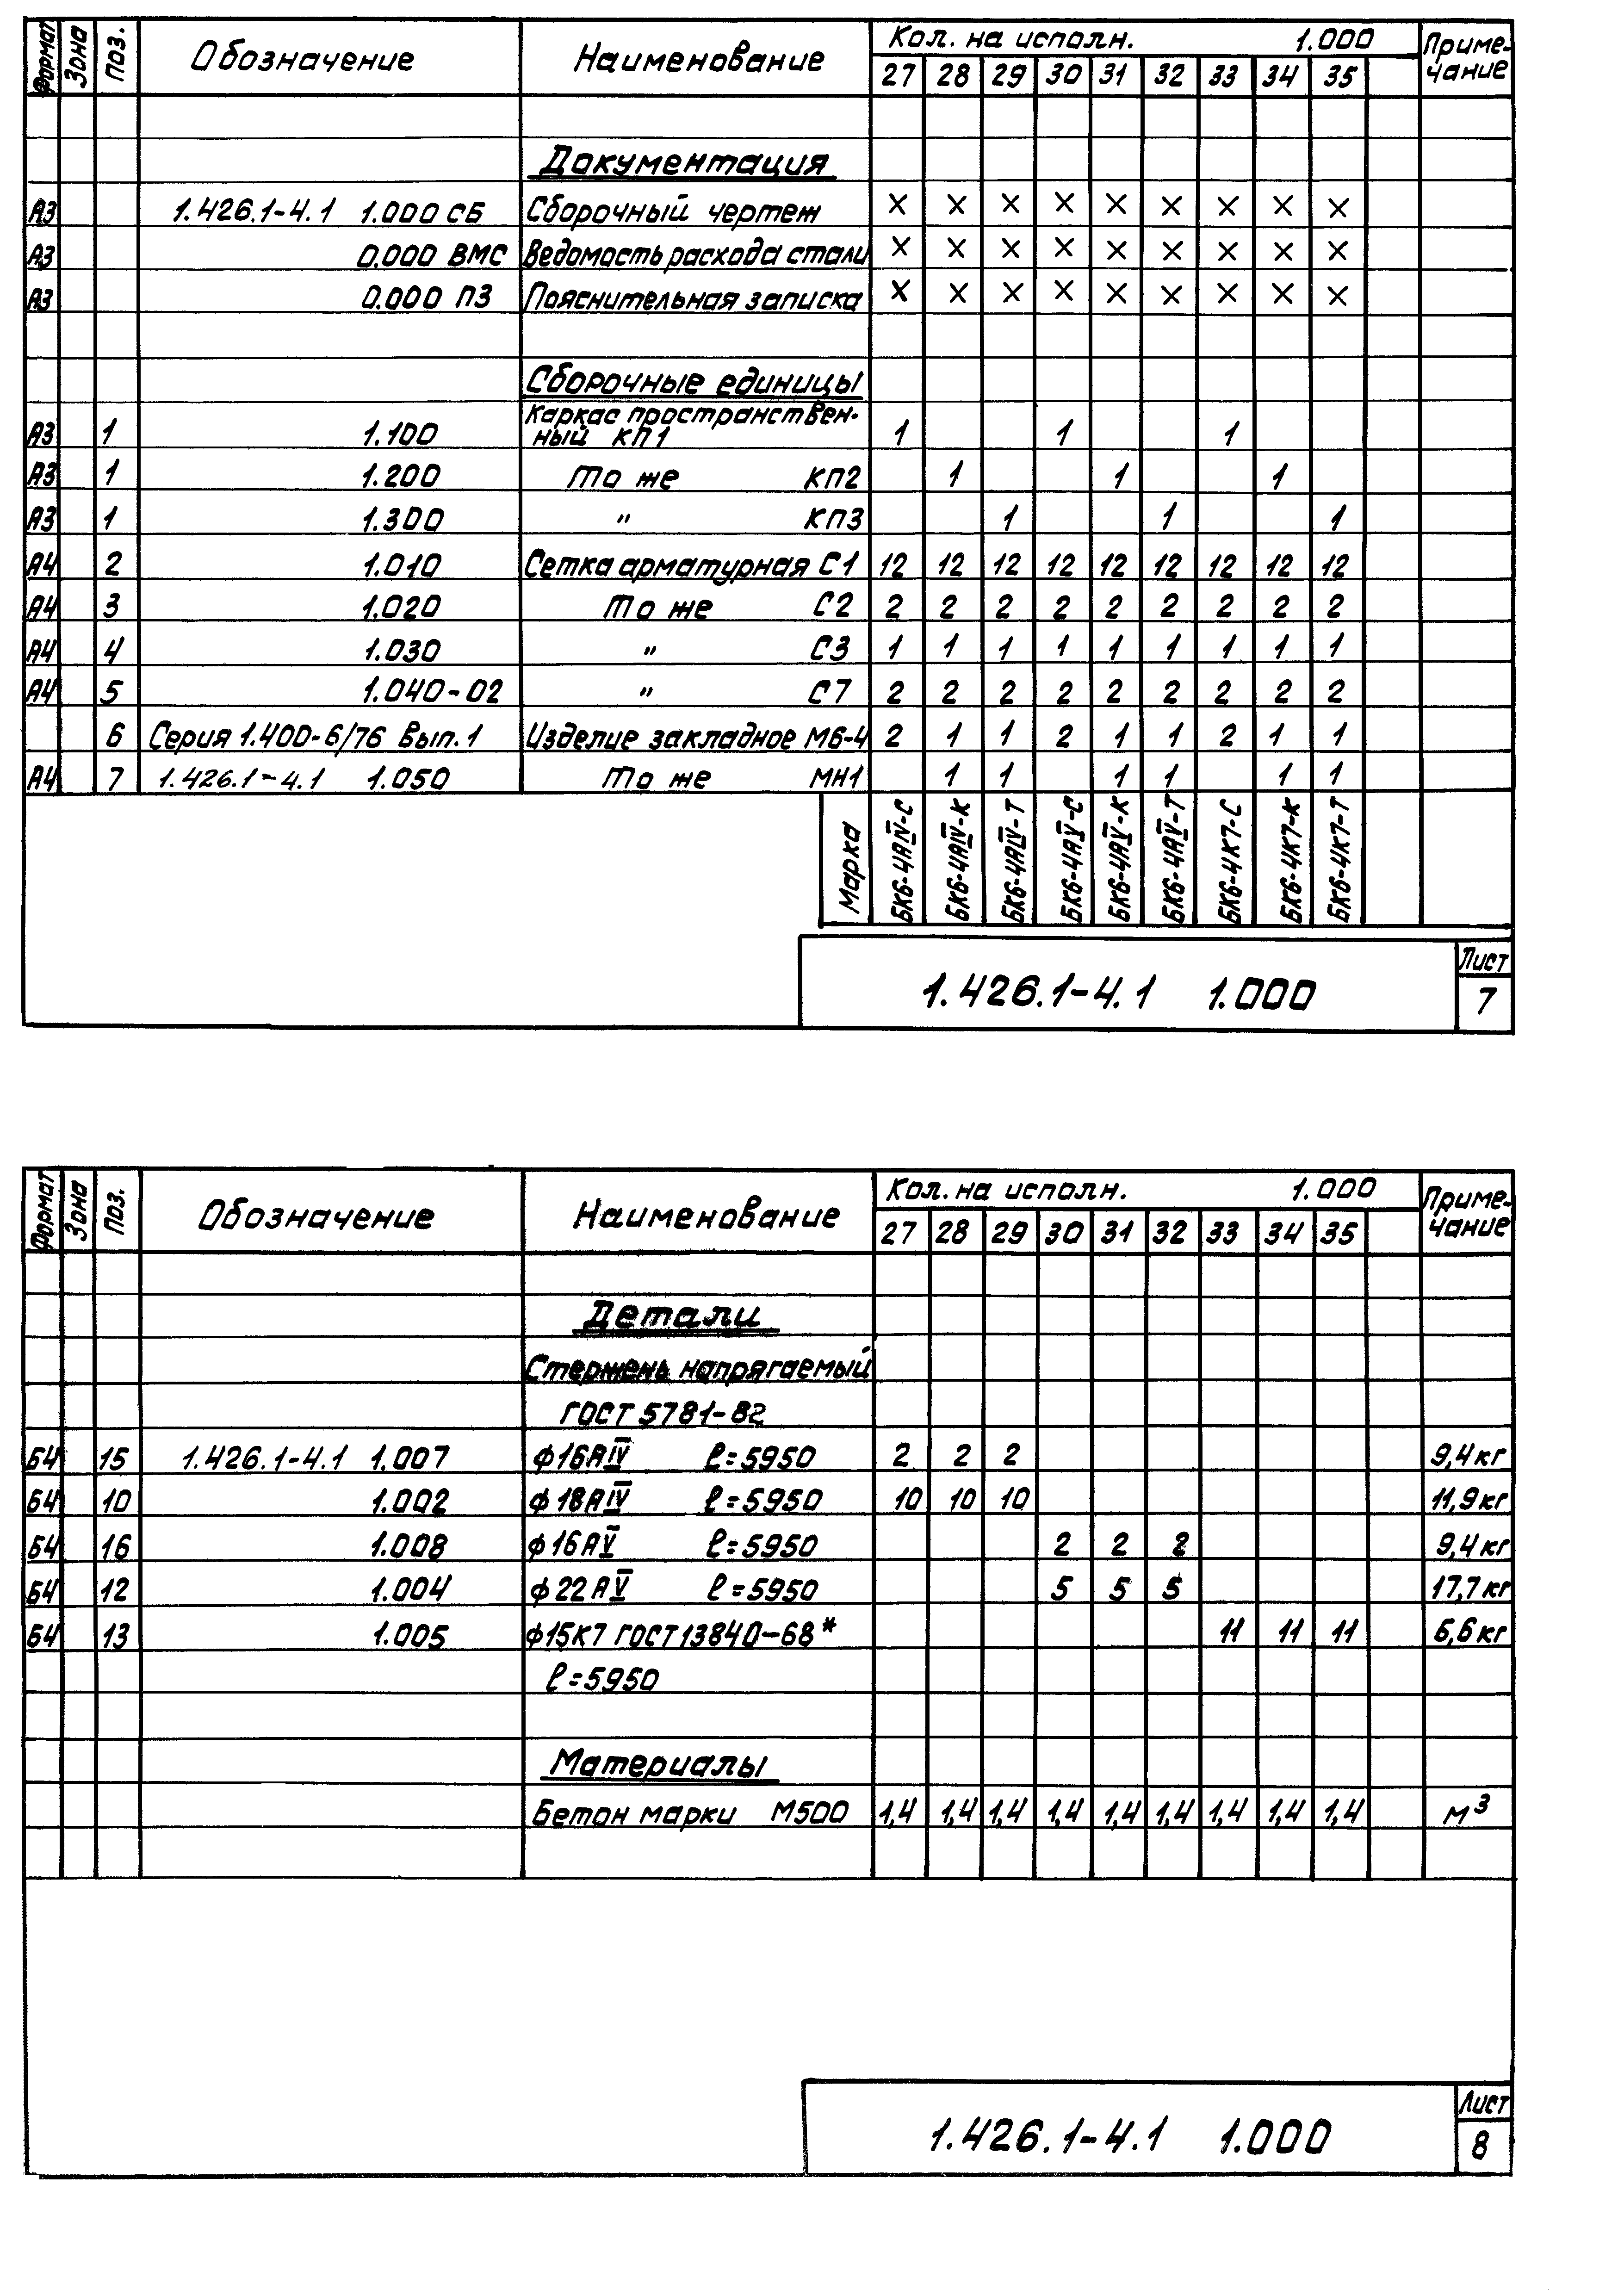 Формат Зона Поз. Обозначение Наименование Кол. на исполн. 1.000 Приме-
27 28 29 30 31 32 33 34 35 чание
Документация
А3 1.426.1-4.1 1.000 СБ Сборочный чертеж × × × × × × × × ×
А3 0.000 ВМС Ведомость расхода стали × × × × × × × × ×
А3 0.000 ПЗ Пояснительная записка × × × × × × × × ×
Сборочные единицы
Каркас пространствен-
А3 1 1.100 ный КП1 1 1 1
А3 1 1.200 То же КП2 1 1 1
А3 1 1.300 " КП3 1 1 1
А4 2 1.010 Сетка арматурная С1 12 12 12 12 12 12 12 12 12
А4 3 1.020 То же С2 2 2 2 2 2 2 2 2 2
А4 4 1.030 " С3 1 1 1 1 1 1 1 1 1
А4 5 1.040-02 " С7 2 2 2 2 2 2 2 2 2
6 Серия 1.400-6/76 Вып.1 Изделие закладное М6-4 2 1 1 2 1 1 2 1 1
А4 7 1.426.1-4.1 1.050 То же МН1 1 1 1 1 1 1
Марка БК6-4АIV-С БК6-4АIV-К БК6-4АIV-Т БК6-4АV-С БК6-4АV-К БК6-4АV-Т БК6-4К7-С БК6-4К7-К БК6-4К7-Т
1.426.1-4.1 1.000
Лист
7
Формат Зона Поз. Обозначение Наименование Кол. на исполн. 1.000 Приме-
27 28 29 30 31 32 33 34 35 чание
Детали
Стержень напрягаемый
ГОСТ 5781-82
Б4 15 1.426.1-4.1 1.007 ф16АIV ℓ=5950 2 2 2 9,4 кг
Б4 10 1.002 ф18АIV ℓ=5950 10 10 10 11,9 кг
Б4 16 1.008 ф16АV ℓ=5950 2 2 2 9,4 кг
Б4 12 1.004 ф22АV ℓ=5950 5 5 5 17,7 кг
Б4 13 1.005 ф15К7 ГОСТ 13840-68* 11 11 11 6,6 кг
ℓ=5950
Материалы
Бетон марки М500 1,4 1,4 1,4 1,4 1,4 1,4 1,4 1,4 1,4 м³
1.426.1-4.1 1.000
Лист
8